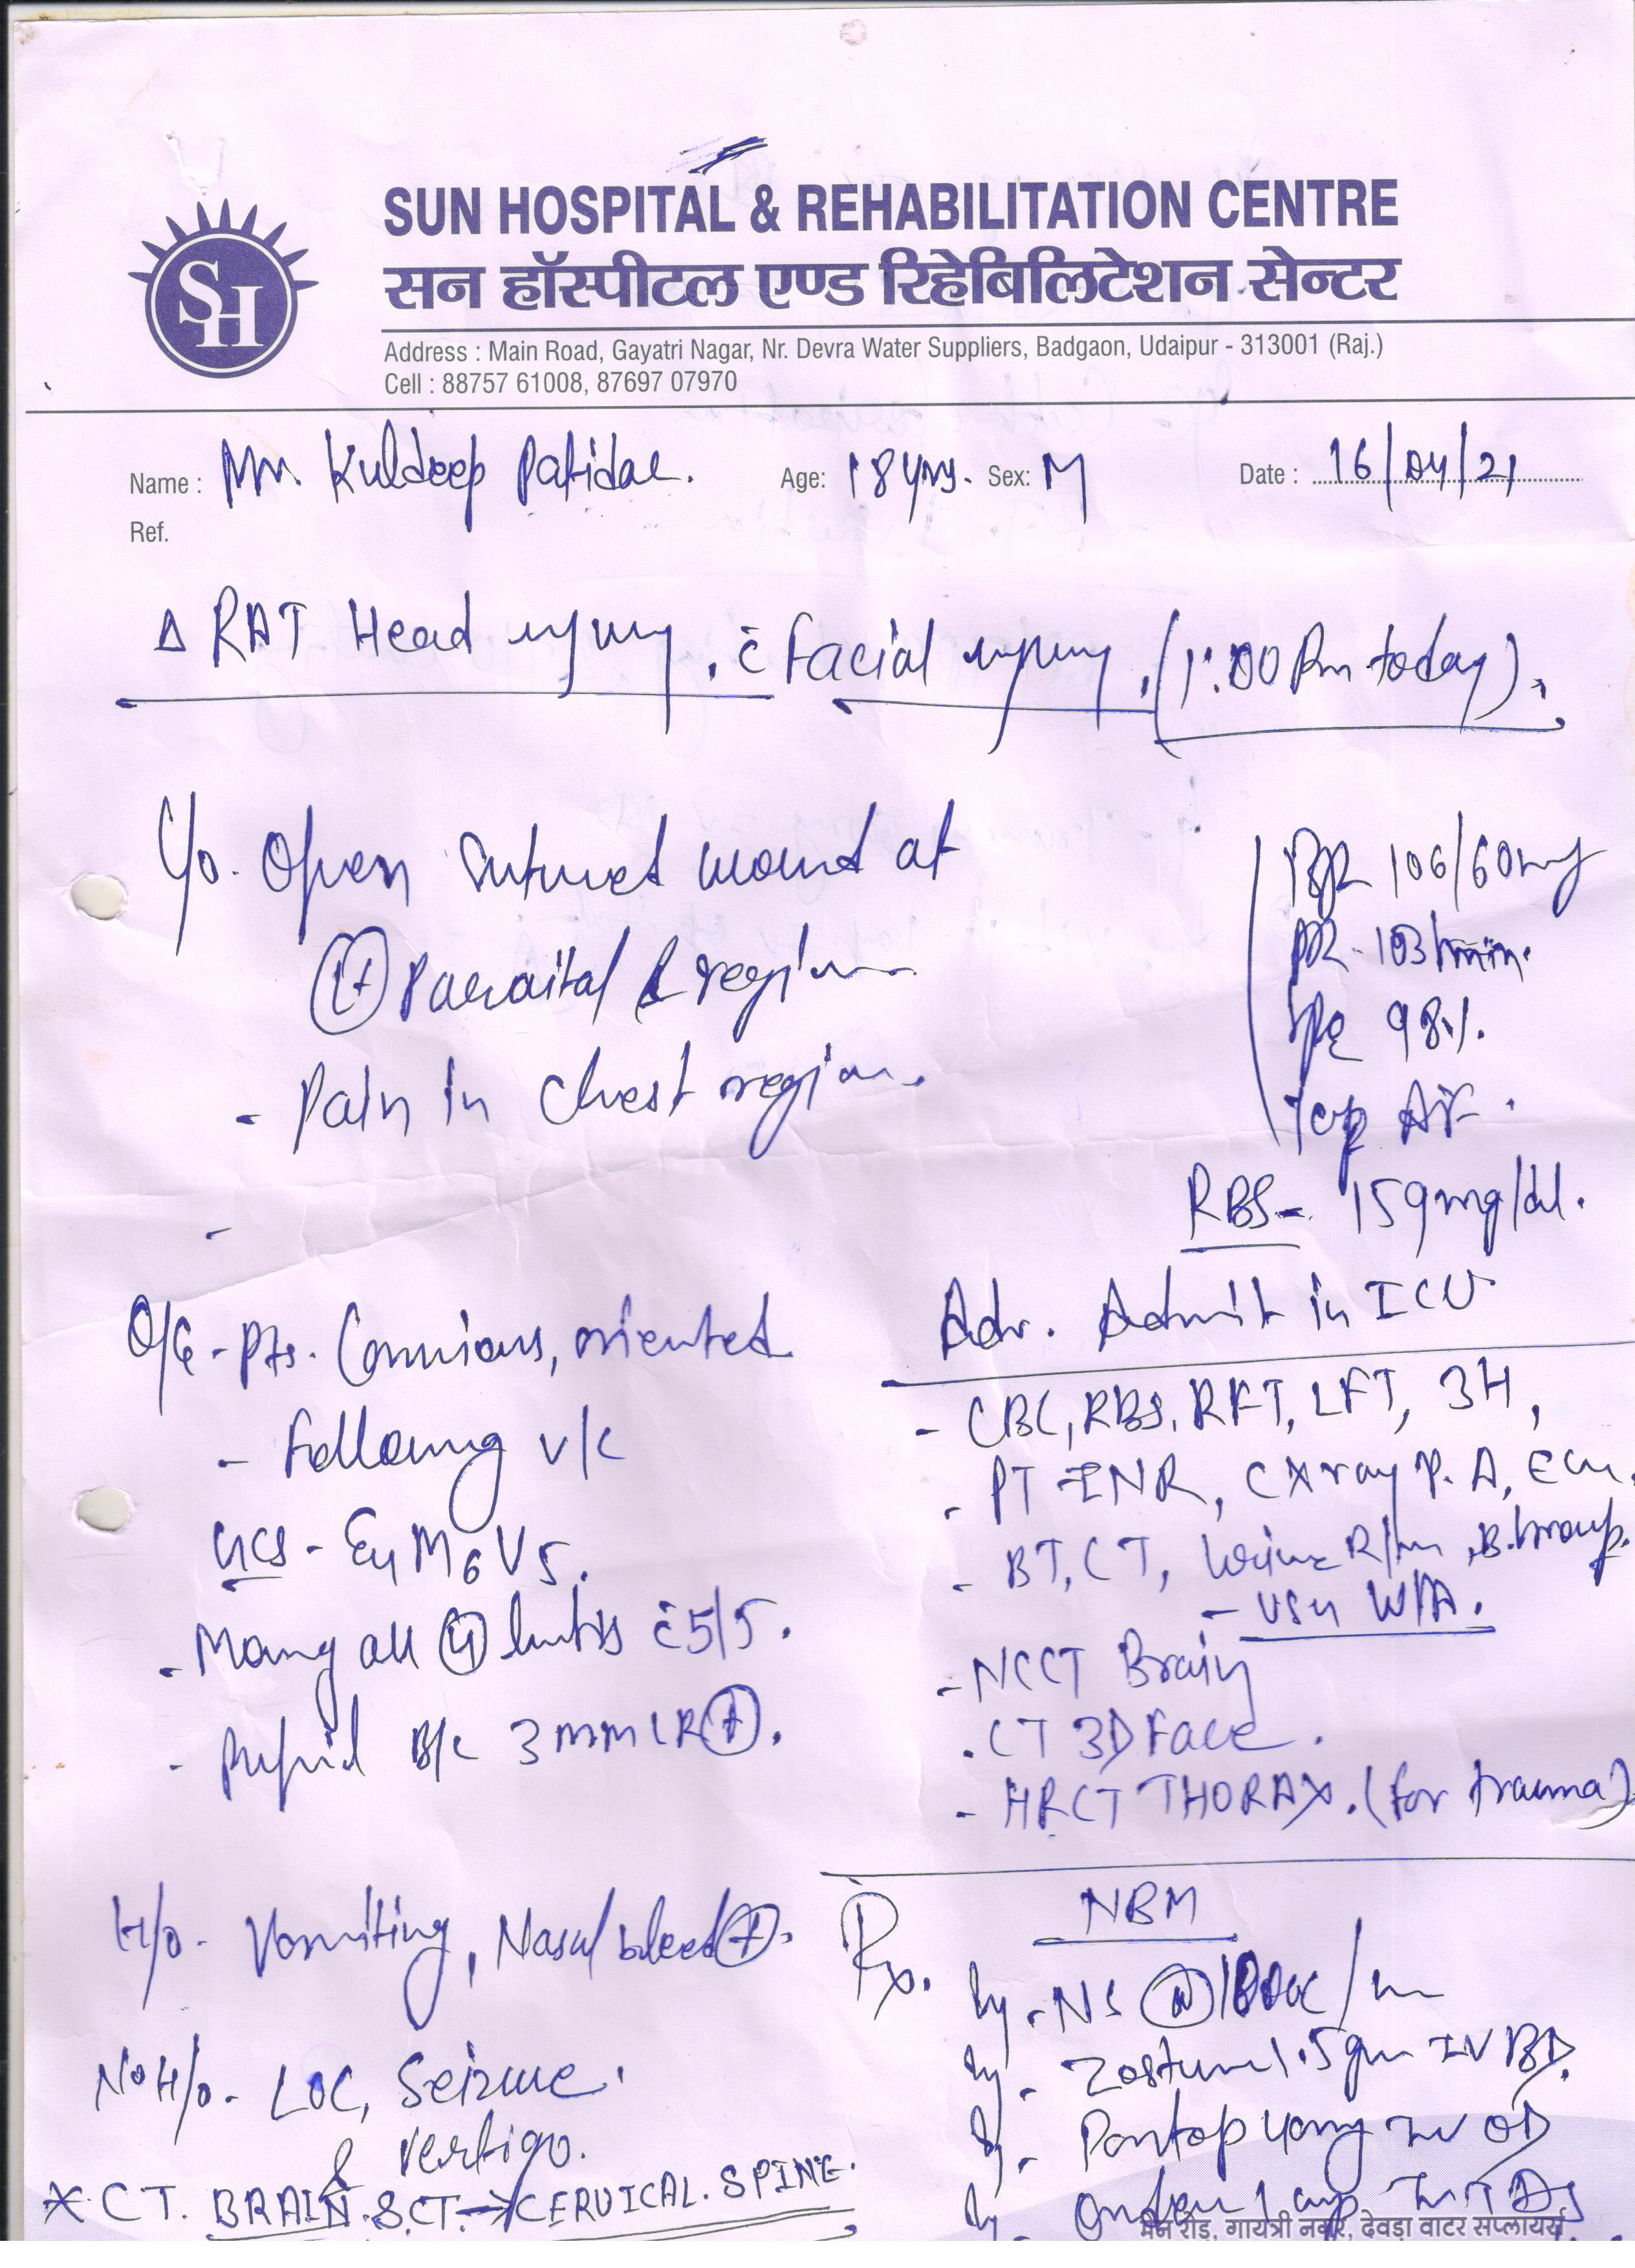 SUN HOSPITAL & REHABILITATION CENTRE
सन हॉस्पीटल एण्ड रिहेबिलिटेशन सेन्टर
SH
Address : Main Road, Gayatri Nagar, Nr. Devra Water Suppliers, Badgaon, Udaipur - 313001 (Raj.)
Cell : 88757 61008, 87697 07970
Name : Mr. Kuldeep Patidar. Age: 18 yrs. Sex: M Date : 16/04/21
Ref.
Δ RAT Head injury, c̄ facial injury, (1:00 Pm today).
C/o. Open sutured wound at
(Lt) Paeraital & region
- Pain in chest region.
-
BP 106/60 mg
PR - 103/min.
SPO2 98%.
Temp Af.
RBS - 159 mg/dl.
O/E - Pts. Conscious, oriented
- Following v/c
GCS - E4 M6 V5.
- Moving all (4) limbs c̄ 5/5.
- Pupil B/L 3mm LR (+).
H/o. Vomiting, Nasal bleed (+).
No H/o - LOC, Seizure.
& Vertigo.
* CT. BRAIN. S.CT. → CERVICAL. SPINE.
Adv. Admit in ICU
- CBC, RBS, RFT, LFT, 3H,
- PT-INR, CXray P.A, ECG.
- BT, CT, Urine R/m, B.Group.
- USG W/A.
- NCCT Brain
- CT 3D Face.
- HRCT THORAX. (for trauma)
Rx. NBM
Inj. NS @ 100cc/hr
Inj. Zostum 1.5gm IV BD.
Inj. Pantop 40mg IV OD
Inj. Ondem 1 amp IV TDS
मेन रोड, गायत्री नगर, देवड़ा वाटर सप्लायर्स